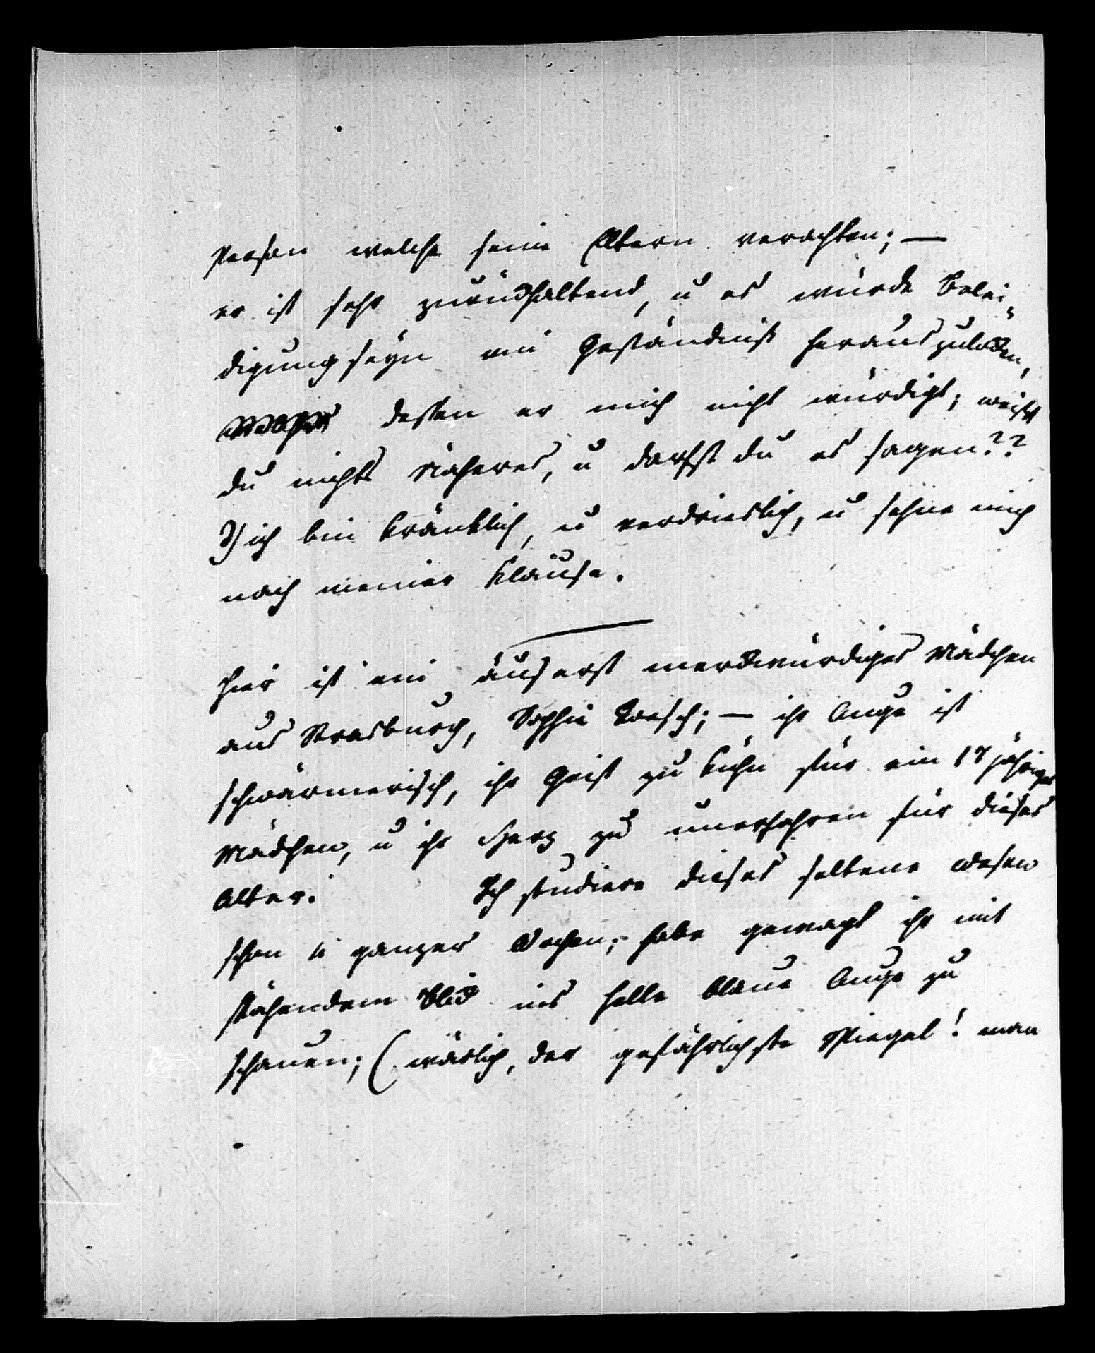 Person welche seine Eltern verachten; —
er ist sehr zurückhaltend, u es würde Belei-
digung seyn ein Geständniß herauszulocken,
dessen er mich nicht würdigt; weist
du nichts Näheres, u darfst du es sagen??
3) ich bin kränklich, u verdrieslich, u sehne mich
nach meiner Klause.
hier ist ein äuserst merckwürdiges Mädchen
aus Strasburg, Sophie; — ihr Auge ist
schwärmerisch, ihr Geist zu kühn für ein 17 jähriges
Mädchen, u ihr Herz zu unerfahren für dieses
Alter. Ich studiere dieses seltene Wesen
schon ganzer Wochen; habe gewagt ihr mit
spähendem Blick ins helle blaue Auge zu
schauen; (wärlich, der gefährlichste Spiegel! man